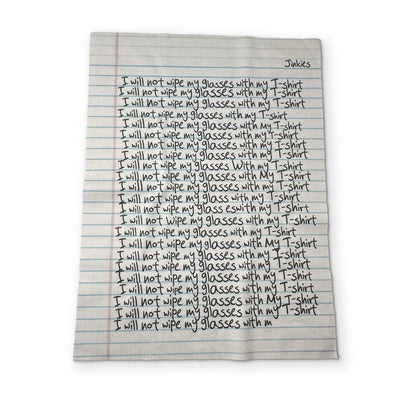 Jinkies
I will not wipe my glasses with my T-shirt
I will not wipe my glasses with my T-shirt
I will not wipe my glasses with my T-shirt
I will not wipe my glasses with my T-shirt
I will not wipe my glasses with My T-shirt
I will not wipe my glasses with my T-shirt
I will not wipe my glasses with my T-shirt
I will not wipe my glasses with my T-shirt
I will not wipe my glasses With my T-shirt
I will not wipe my glasses with My T-shirt
I will not wipe my glasses with my T-shirt
I will not wipe my glass with my T-shirt
I will not wipe my glass eswith my T-shirt
I will not wipe my glasses with my T-shirt
I will not wipe my glasses with My T-shirt
I will not wipe my glasses with my T-shirt
I will not wipe my glasses with my T-shirt
I will not wipe my glasses with my T-shirt
I will not wipe my glasses with my T-shirt
I will not wipe my glasses with My T-shirt
I will not wipe my glasses with my T-shirt
I will not wipe my glasses with m